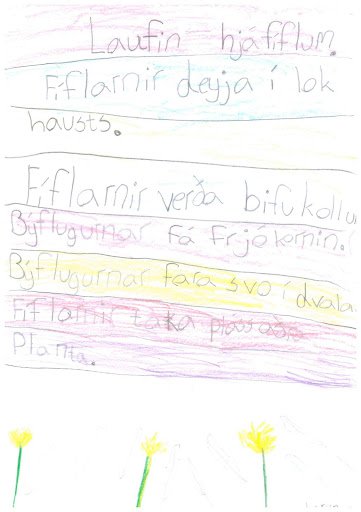 Laufin hjáfíflum.
Fíflarnir deyja í lok
hausts.
Fíflarnir verða bifukollur
Býflugurnar fá frjókornin.
Býflugurnar fara svo í dvala.
Fíflarnir taka pláss
Planta.